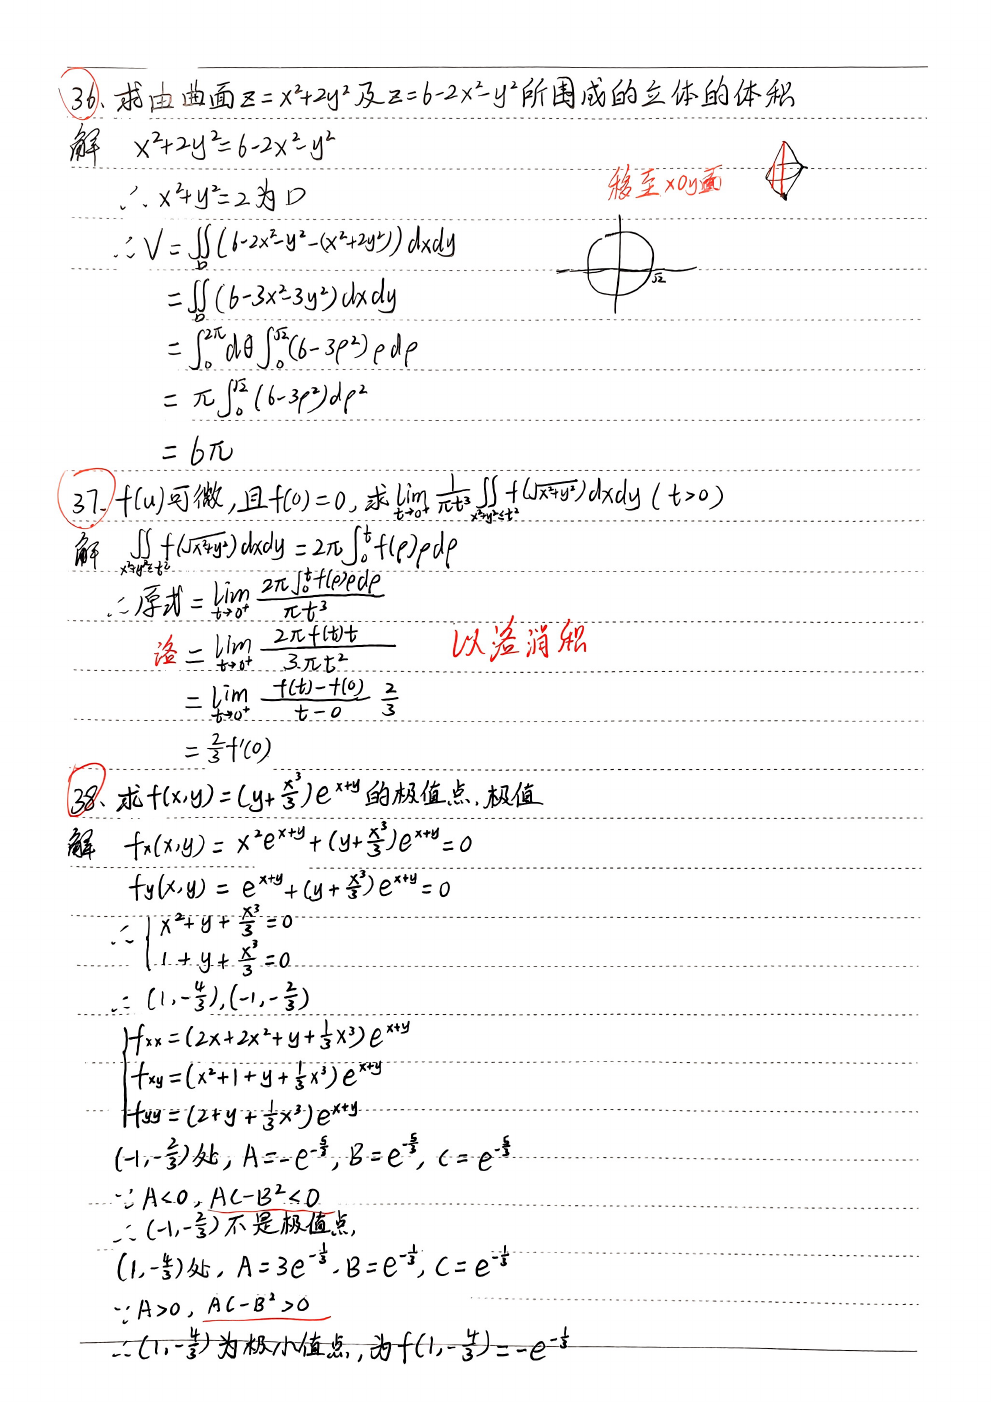 36、求由曲面z=x²+2y²及z=6-2x²-y²所围成的立体的体积
解 x²+2y²=6-2x²-y²
∴x²+y²=2为D
移至xOy面
∴V=∬_D(6-2x²-y²-(x²+2y²))dxdy
√2
=∬_D(6-3x²-3y²)dxdy
=∫₀^{2π}dθ∫₀^{√2}(6-3ρ²)ρdρ
=π∫₀^{√2}(6-3ρ²)dρ²
=6π
37、f(u)可微,且f(0)=0,求lim_{t→0⁺} 1/(πt³) ∬_{x²+y²≤t²} f(√(x²+y²))dxdy (t>0)
解 ∬_{x²+y²≤t²} f(√(x²+y²))dxdy=2π∫₀^t f(ρ)ρdρ
∴原式=lim_{t→0⁺} (2π∫₀^t f(ρ)ρdρ)/(πt³)
洛 =lim_{t→0⁺} (2πf(t)t)/(3πt²) 以洛消积
=lim_{t→0⁺} (f(t)-f(0))/(t-0) 2/3
=2/3 f'(0)
38、求f(x,y)=(y+x³/3)e^{x+y}的极值点,极值
解 fx(x,y)=x²e^{x+y}+(y+x³/3)e^{x+y}=0
fy(x,y)=e^{x+y}+(y+x³/3)e^{x+y}=0
∴{x²+y+x³/3=0
1+y+x³/3=0
∴(1,-4/3),(-1,-2/3)
{fxx=(2x+2x²+y+1/3x³)e^{x+y}
fxy=(x²+1+y+1/3x³)e^{x+y}
fyy=(2+y+1/3x³)e^{x+y}
(-1,-2/3)处,A=-e^{-5/3},B=e^{-5/3},C=e^{-5/3}
∵A<0,AC-B²<0
∴(-1,-2/3)不是极值点,
(1,-4/3)处,A=3e^{-1/3},B=e^{-1/3},C=e^{-1/3}
∵A>0,AC-B²>0
∴(1,-4/3)为极小值点,为f(1,-4/3)=-e^{-1/3}